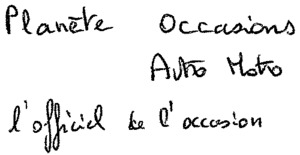 Planète Occasions
Auto Moto
l'officiel de l'occasion